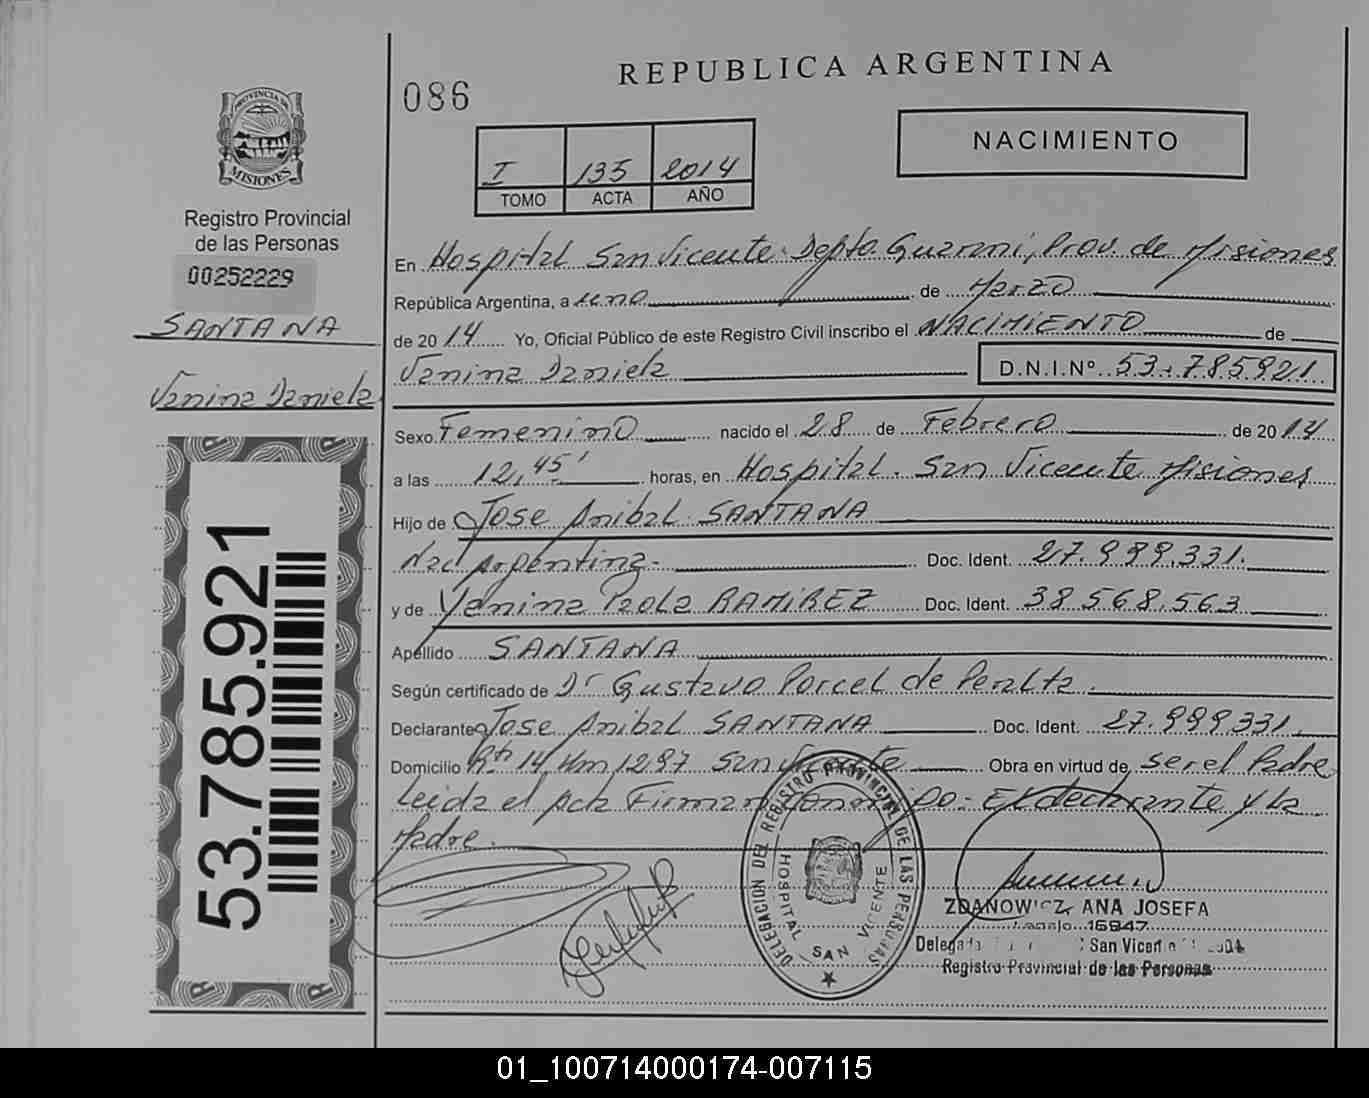 REPUBLICA ARGENTINA
086
NACIMIENTO
PROVINCIA DE
MISIONES
I 135 2014
TOMO ACTA AÑO
Registro Provincial
de las Personas
00252229
SANTANA
Vanina Daniela
53.785.921
En Hospital San Vicente. Depto. Guarani, Prov. de Misiones
República Argentina, a uno de Marzo
de 2014 Yo, Oficial Público de este Registro Civil inscribo el NACIMIENTO de
Vanina Daniela D.N.I.Nº 53.785921
Sexo Femenino nacido el 28 de Febrero de 2014
a las 12,45' horas, en Hospital. San Vicente Misiones
Hijo de Jose Anibal SANTANA
Nac Argentina. Doc. Ident. 27.999.331.
y de Yanina Paola RAMIREZ Doc. Ident. 38.568.563
Apellido SANTANA
Según certificado de Dr Gustavo Porcel de Peralta.
Declarante Jose Anibal SANTANA Doc. Ident. 27.999331.
Domicilio Rta 14 Km 1297 San Vicente Obra en virtud de ser el Padre
Leida el acta Firman conmigo: El declarante y La
Madre.
DELEGACION DEL REGISTRO PROVINCIAL DE LAS PERSONAS
HOSPITAL SAN VICENTE
ZDANOWICZ, ANA JOSEFA
Legajo 16947
San Vicente
Registro Provincial de las Personas
01_100714000174-007115